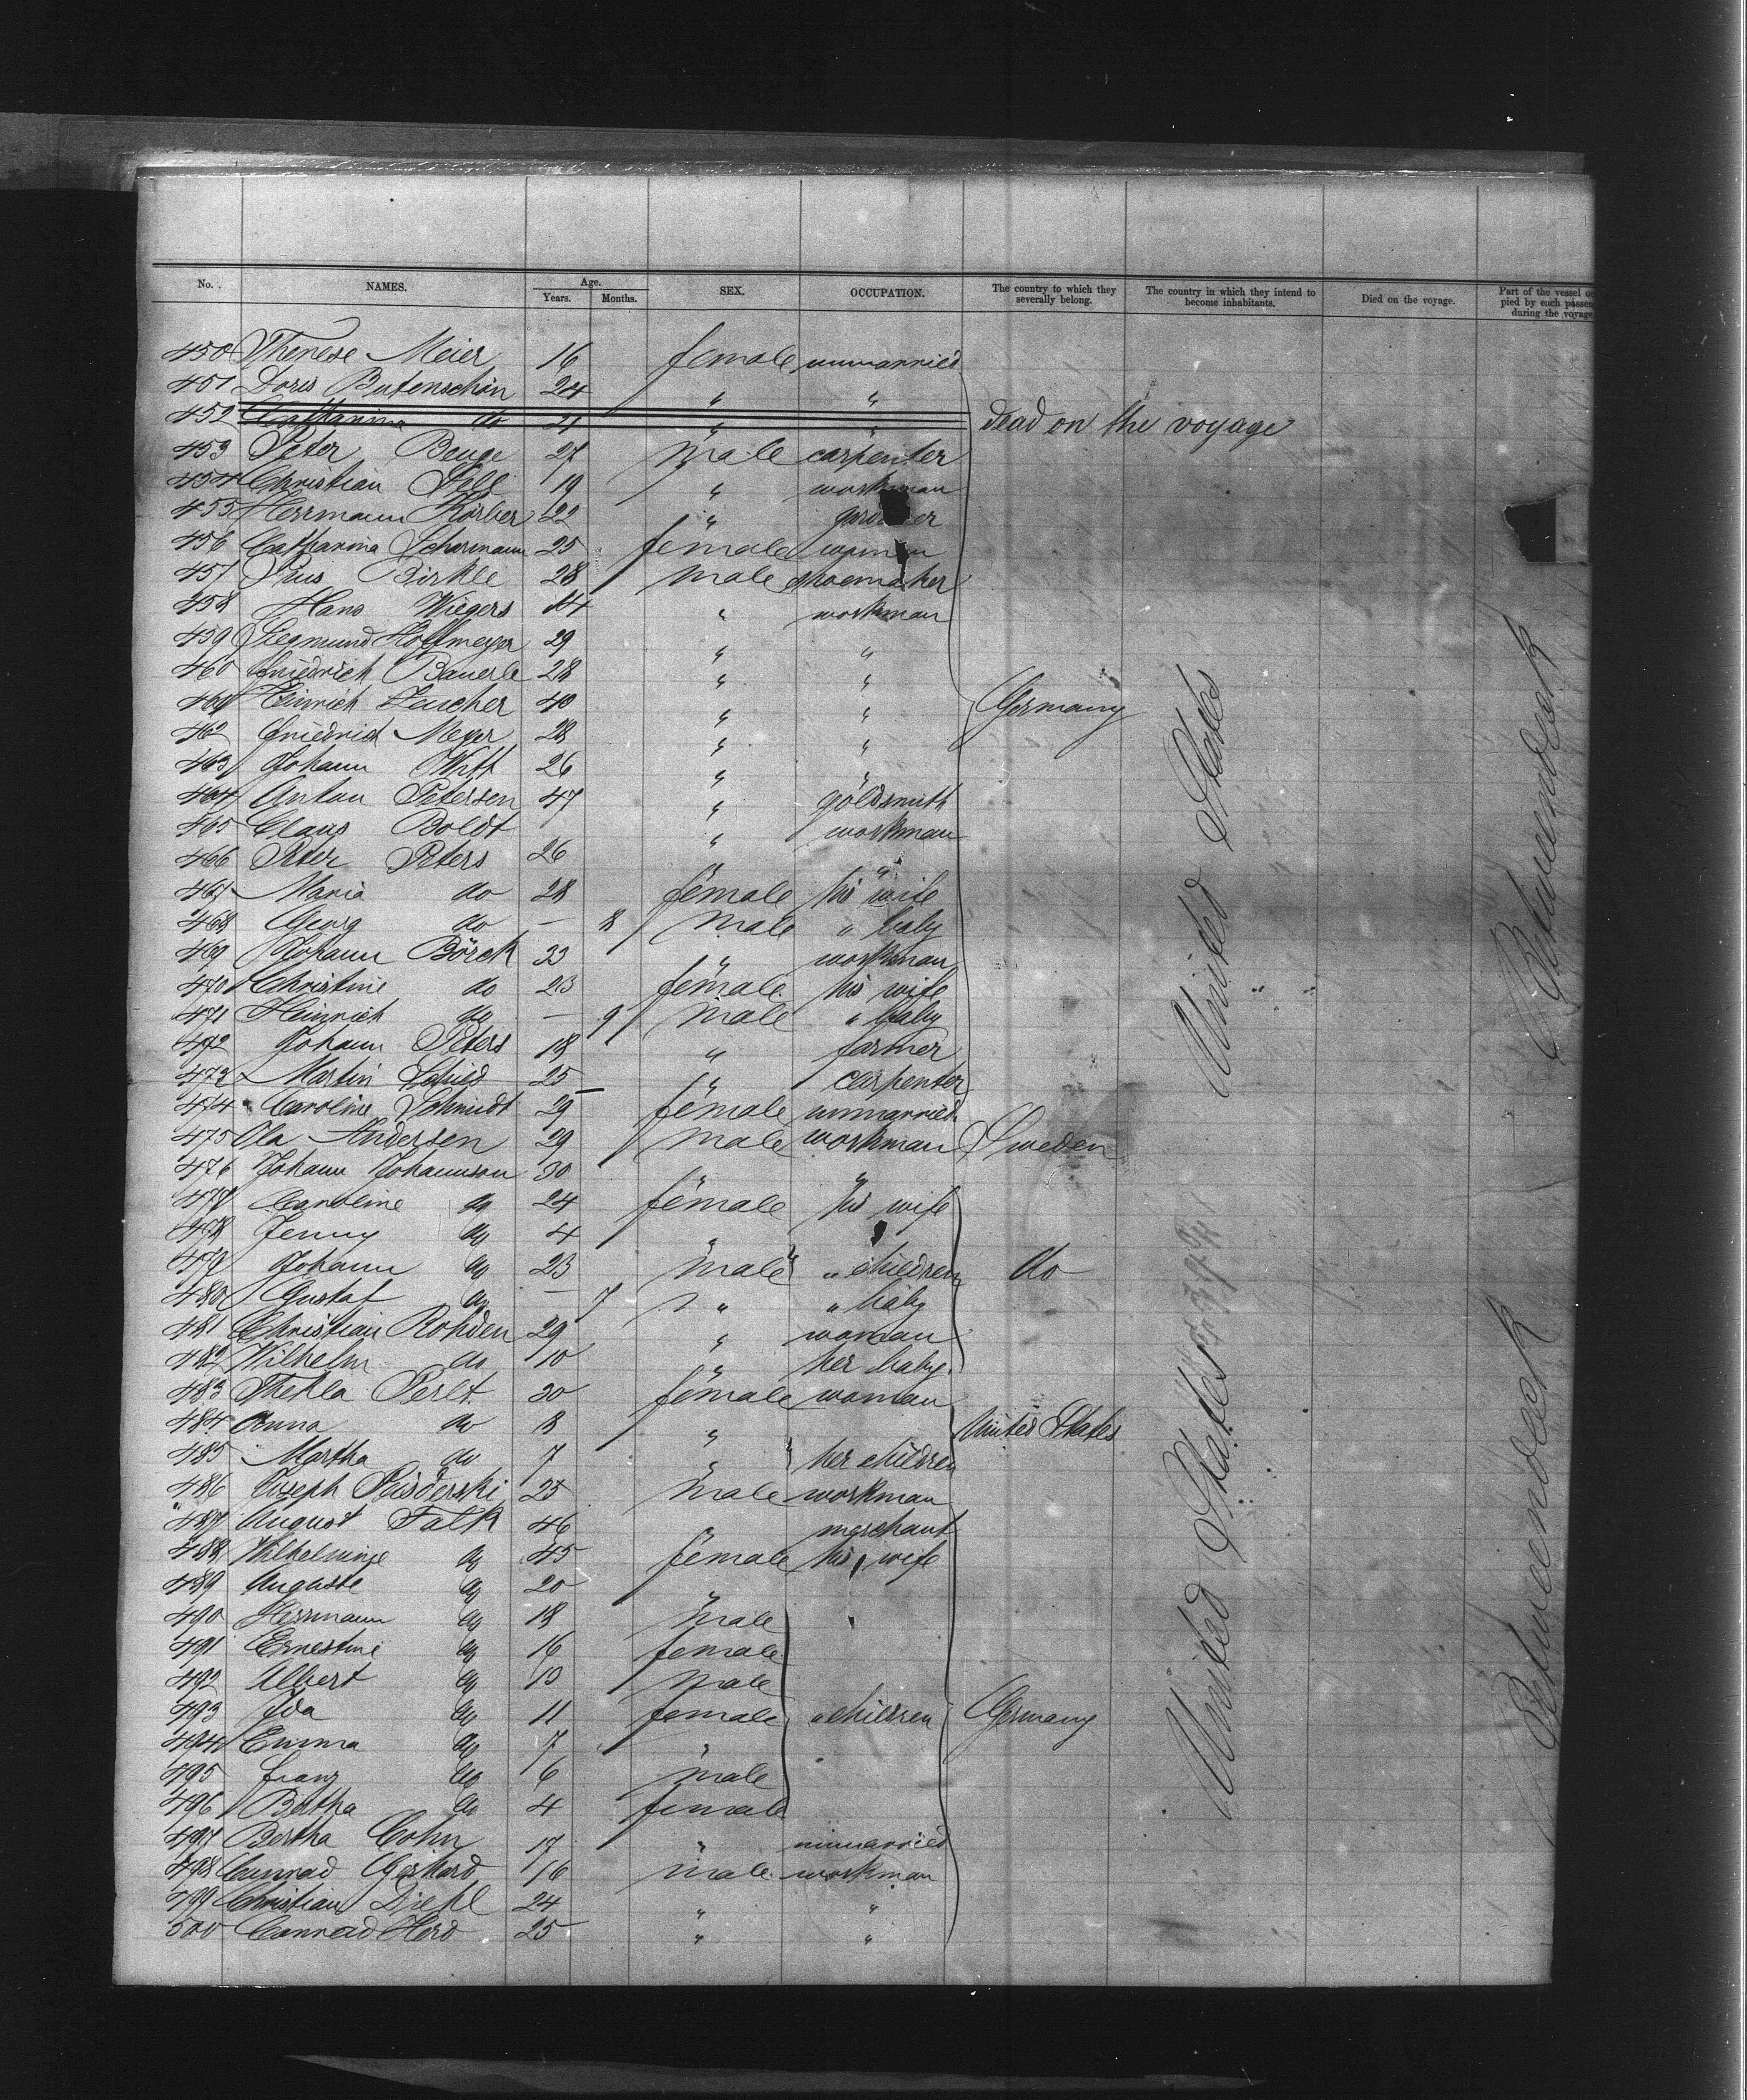 No. NAMES. Age. Years. Months. SEX. OCCUPATION. The country to which they severally belong. The country in which they intend to become inhabitants. Died on the voyage. Part of the vessel oc pied by each passen during the voyage
450 Therese Meier 16 female unmarried
451 Doris Butenschön 24 " "
452 Catharina do 21 " " dead on the voyage
453 Peter Beuge 27 male carpenter
454 Christian Sell 19 " workman
455 Herrmann Körber 22 " gardener
456 Catharina Scharmann 25 female woman
457 Pius Birkle 28 male shoemaker
458 Hans Wiegers 14 " workman
459 Siegmund Hoffmeyer 29 " "
460 Friedrich Bauerle 28 " "
461 Heinrich Zeucher 40 " " Germany
462 Friedrich Meyer 28 " "
463 Johann Witt 26 " "
464 Anton Petersen 47 " goldsmith
465 Claus Boldt " workman
466 Peter Peters 26 "
467 Maria do 28 female his wife
468 Georg do — 8 male " baby
469 Johann Börck 33 " workman
470 Christine do 23 female his wife
471 Heinrich do — 9 male " baby
472 Johann Peters 18 " farmer
473 Martin Schied 25 " carpenter
474 Caroline Schmidt 29 female unmarried
475 Ola Andersen 29 male workman Sweden
476 Johann Johannson 30 " "
477 Caroline do 24 female his wife
478 Jenny do 4 "
479 Johann do 23 male " children do
480 Gustaf do — 7 " " baby
481 Christian Rohden 29 " woman
482 Wilhelm do 10 " her baby
483 Thekla Perlt 30 female woman
484 Anna do 8 " United States
485 Martha do 7 " her children
486 Joseph 25 male workman
487 August Falk 46 " merchant
488 Wilhelmine do 45 female his wife
489 Auguste do 20 "
490 Herrmann do 18 male
491 Ernestine do 16 female
492 Albert do 13 male
493 Ida do 11 female " children Germany
494 Emma do 7 "
495 Franz do 6 male
496 Bertha do 4 female
497 Bertha Cohn 17 " unmarried
498 Conrad Gerhard 16 male workman
499 Christian Diehl 24 " "
500 Conrad Herd 25 " "
United States
United States
Betweendeck
Betweendeck